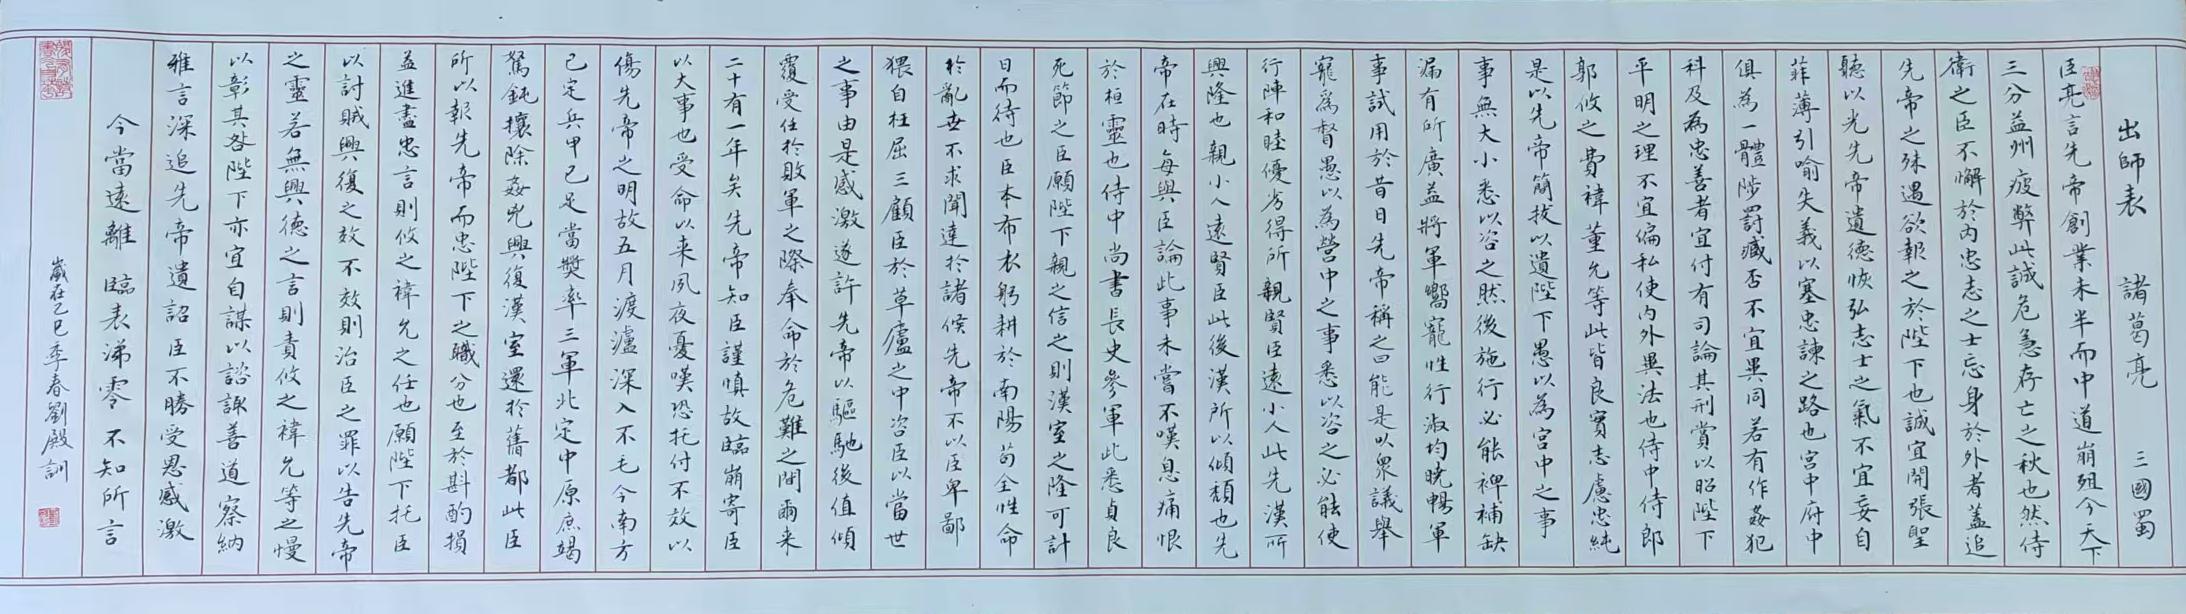 出師表 諸葛亮 三國蜀
臣亮言先帝創業未半而中道崩殂今天下
三分益州疲弊此誠危急存亡之秋也然侍
衛之臣不懈於內忠志之士忘身於外者蓋追
先帝之殊遇欲報之於陛下也誠宜開張聖
聽以光先帝遺德恢弘志士之氣不宜妄自
菲薄引喻失義以塞忠諫之路也宮中府中
俱為一體陟罰臧否不宜異同若有作姦犯
科及為忠善者宜付有司論其刑賞以昭陛下
平明之理不宜偏私使內外異法也侍中侍郎
郭攸之費禕董允等此皆良實志慮忠純
是以先帝簡拔以遺陛下愚以為宮中之事
事無大小悉以咨之然後施行必能裨補缺
漏有所廣益將軍嚮寵性行淑均曉暢軍
事試用於昔日先帝稱之曰能是以衆議舉
寵為督愚以為營中之事悉以咨之必能使
行陣和睦優劣得所親賢臣遠小人此先漢所
興隆也親小人遠賢臣此後漢所以傾頹也先
帝在時每與臣論此事未嘗不嘆息痛恨
於桓靈也侍中尚書長史參軍此悉貞良
死節之臣願陛下親之信之則漢室之隆可計
日而待也臣本布衣躬耕於南陽苟全性命
於亂世不求聞達於諸侯先帝不以臣卑鄙
猥自枉屈三顧臣於草廬之中咨臣以當世
之事由是感激遂許先帝以驅馳後值傾
覆受任於敗軍之際奉命於危難之間爾來
二十有一年矣先帝知臣謹慎故臨崩寄臣
以大事也受命以来夙夜憂嘆恐托付不效以
傷先帝之明故五月渡瀘深入不毛今南方
已定兵甲已足當獎率三軍北定中原庶竭
駑鈍攘除姦兇興復漢室還於舊都此臣
所以報先帝而忠陛下之職分也至於斟酌損
益進盡忠言則攸之禕允之任也願陛下托臣
以討賊興復之效不效則治臣之罪以告先帝
之靈若無興德之言則責攸之禕允等之慢
以彰其咎陛下亦宜自謀以諮諏善道察納
雅言深追先帝遺詔臣不勝受恩感激
今當遠離臨表涕零不知所言
歲在乙巳季春劉殿訓